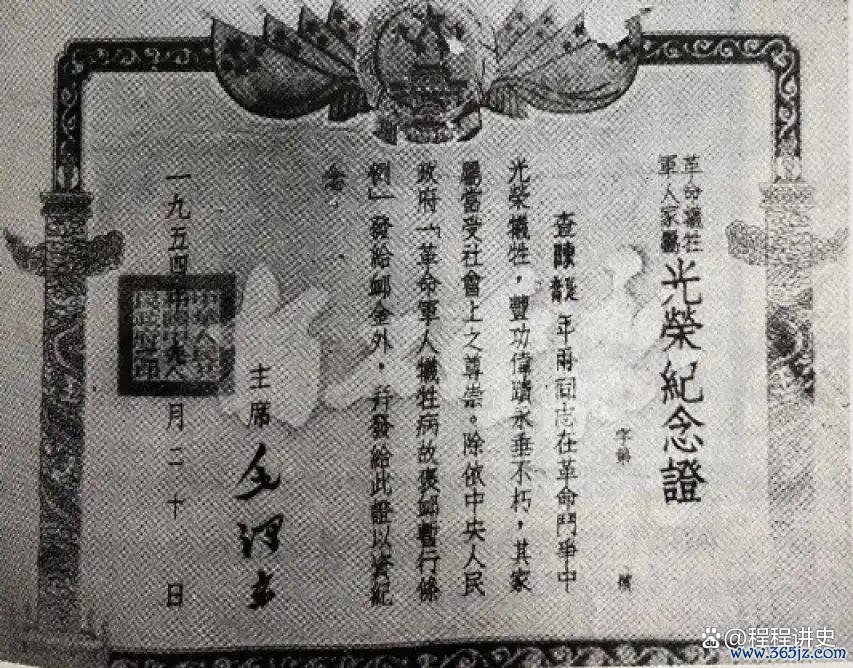 革命犧牲
軍人家屬
光榮紀念證
字第 號
查陳年兩同志在革命鬥爭中
光榮犧牲，豐功偉蹟永垂不朽，其家
屬當受社會上之尊崇。除依中央人民
政府「革命軍人犧牲病故褒卹暫行條
例」發給卹金外，并發給此證以資紀
念。
主席 毛澤東
一九五四年 月二十日
@程程讲史
www.365jz.com